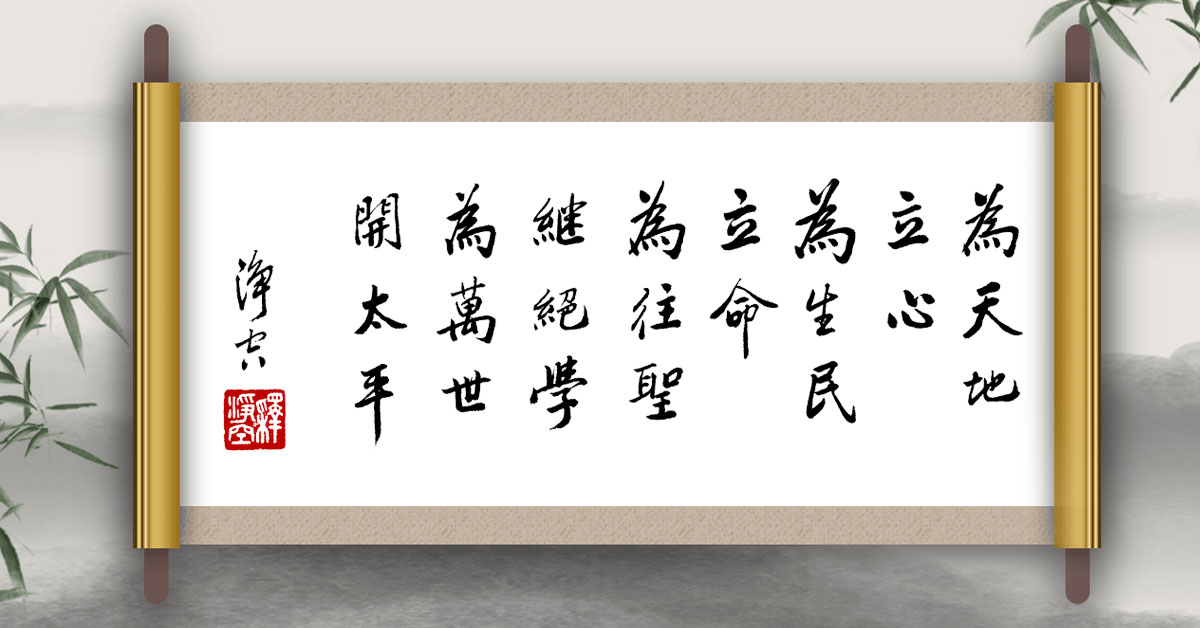 為天地
立心
為生民
立命
為往聖
継絕學
為萬世
開太平
淨空
釋淨空